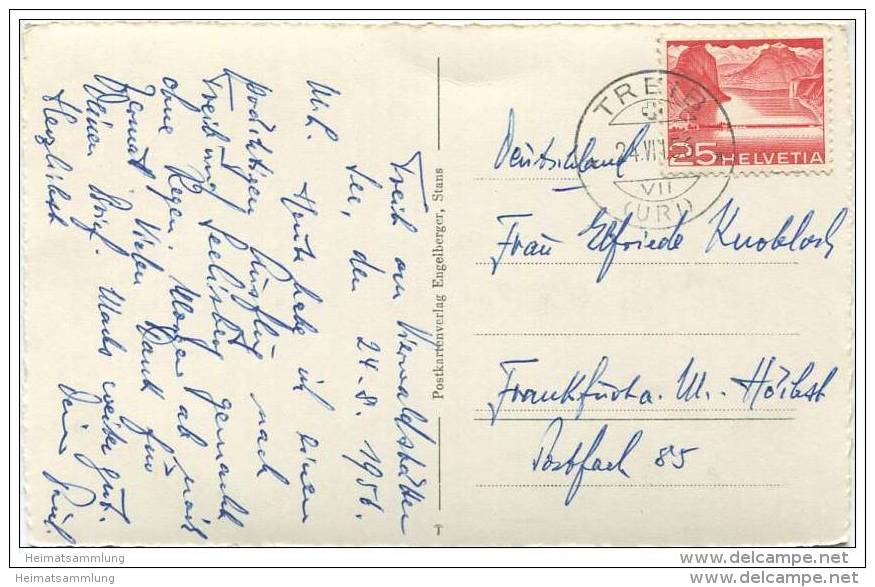 Treib am Vierwaldstätter
See, den 24.8.1956.
M. L.
Heute habe ich einen
prächtigen Ausflug nach
Treib und Seelisberg gemacht
ohne Regen. Morgen ab nach
Zermat. Vielen Dank für
Deinen Brief. Machs weiter gut.
Herzlichst
Dein
Postkartenverlag Engelberger, Stans
TREIB
24.VIII.56
VII
(URI)
25 HELVETIA
Deutschland
Frau Elfriede Knobloch
Frankfurt a. M.-Höchst
Postfach 85
Heimatsammlung
Heimatsammlung
www.delcampe.net
www.delcampe.net